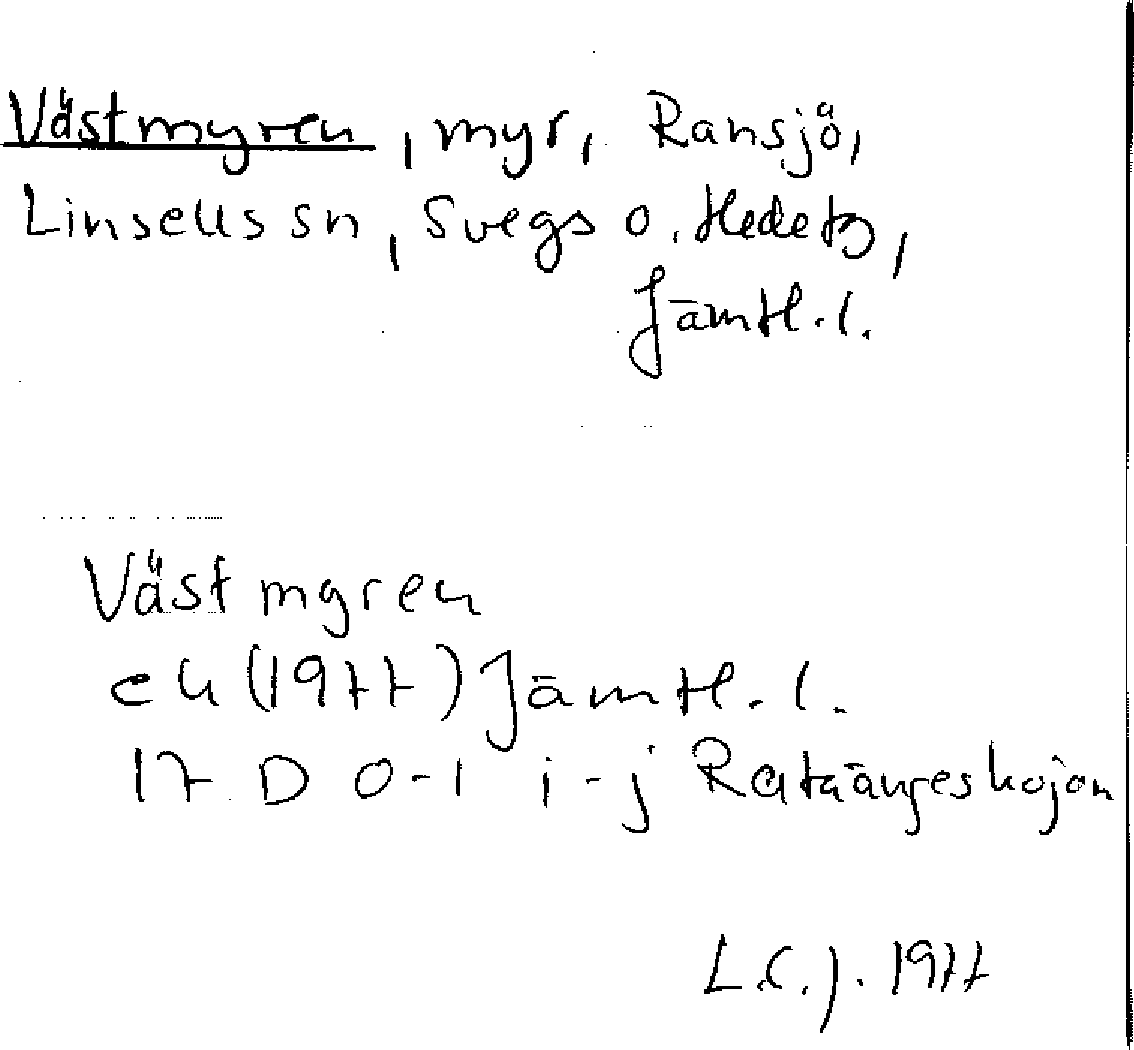 Västmyren, myr, Ransjö,
Linsells sn, Svegs o. Hede tg,
Jämtl. l.
Västmyren
ek (1977) Jämtl. l.
17 D 0-1 i-j
L.C.J. 1977